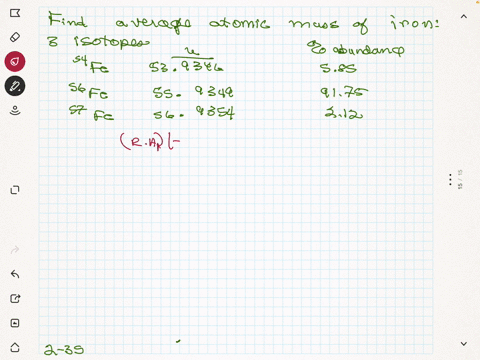 Find average atomic mass of iron:
3 isotopes u % abundance
54Fe 53.9396 5.85
56Fe 55.9349 91.75
57Fe 56.9354 2.12
(R.A)(-
15 / 15
2-35